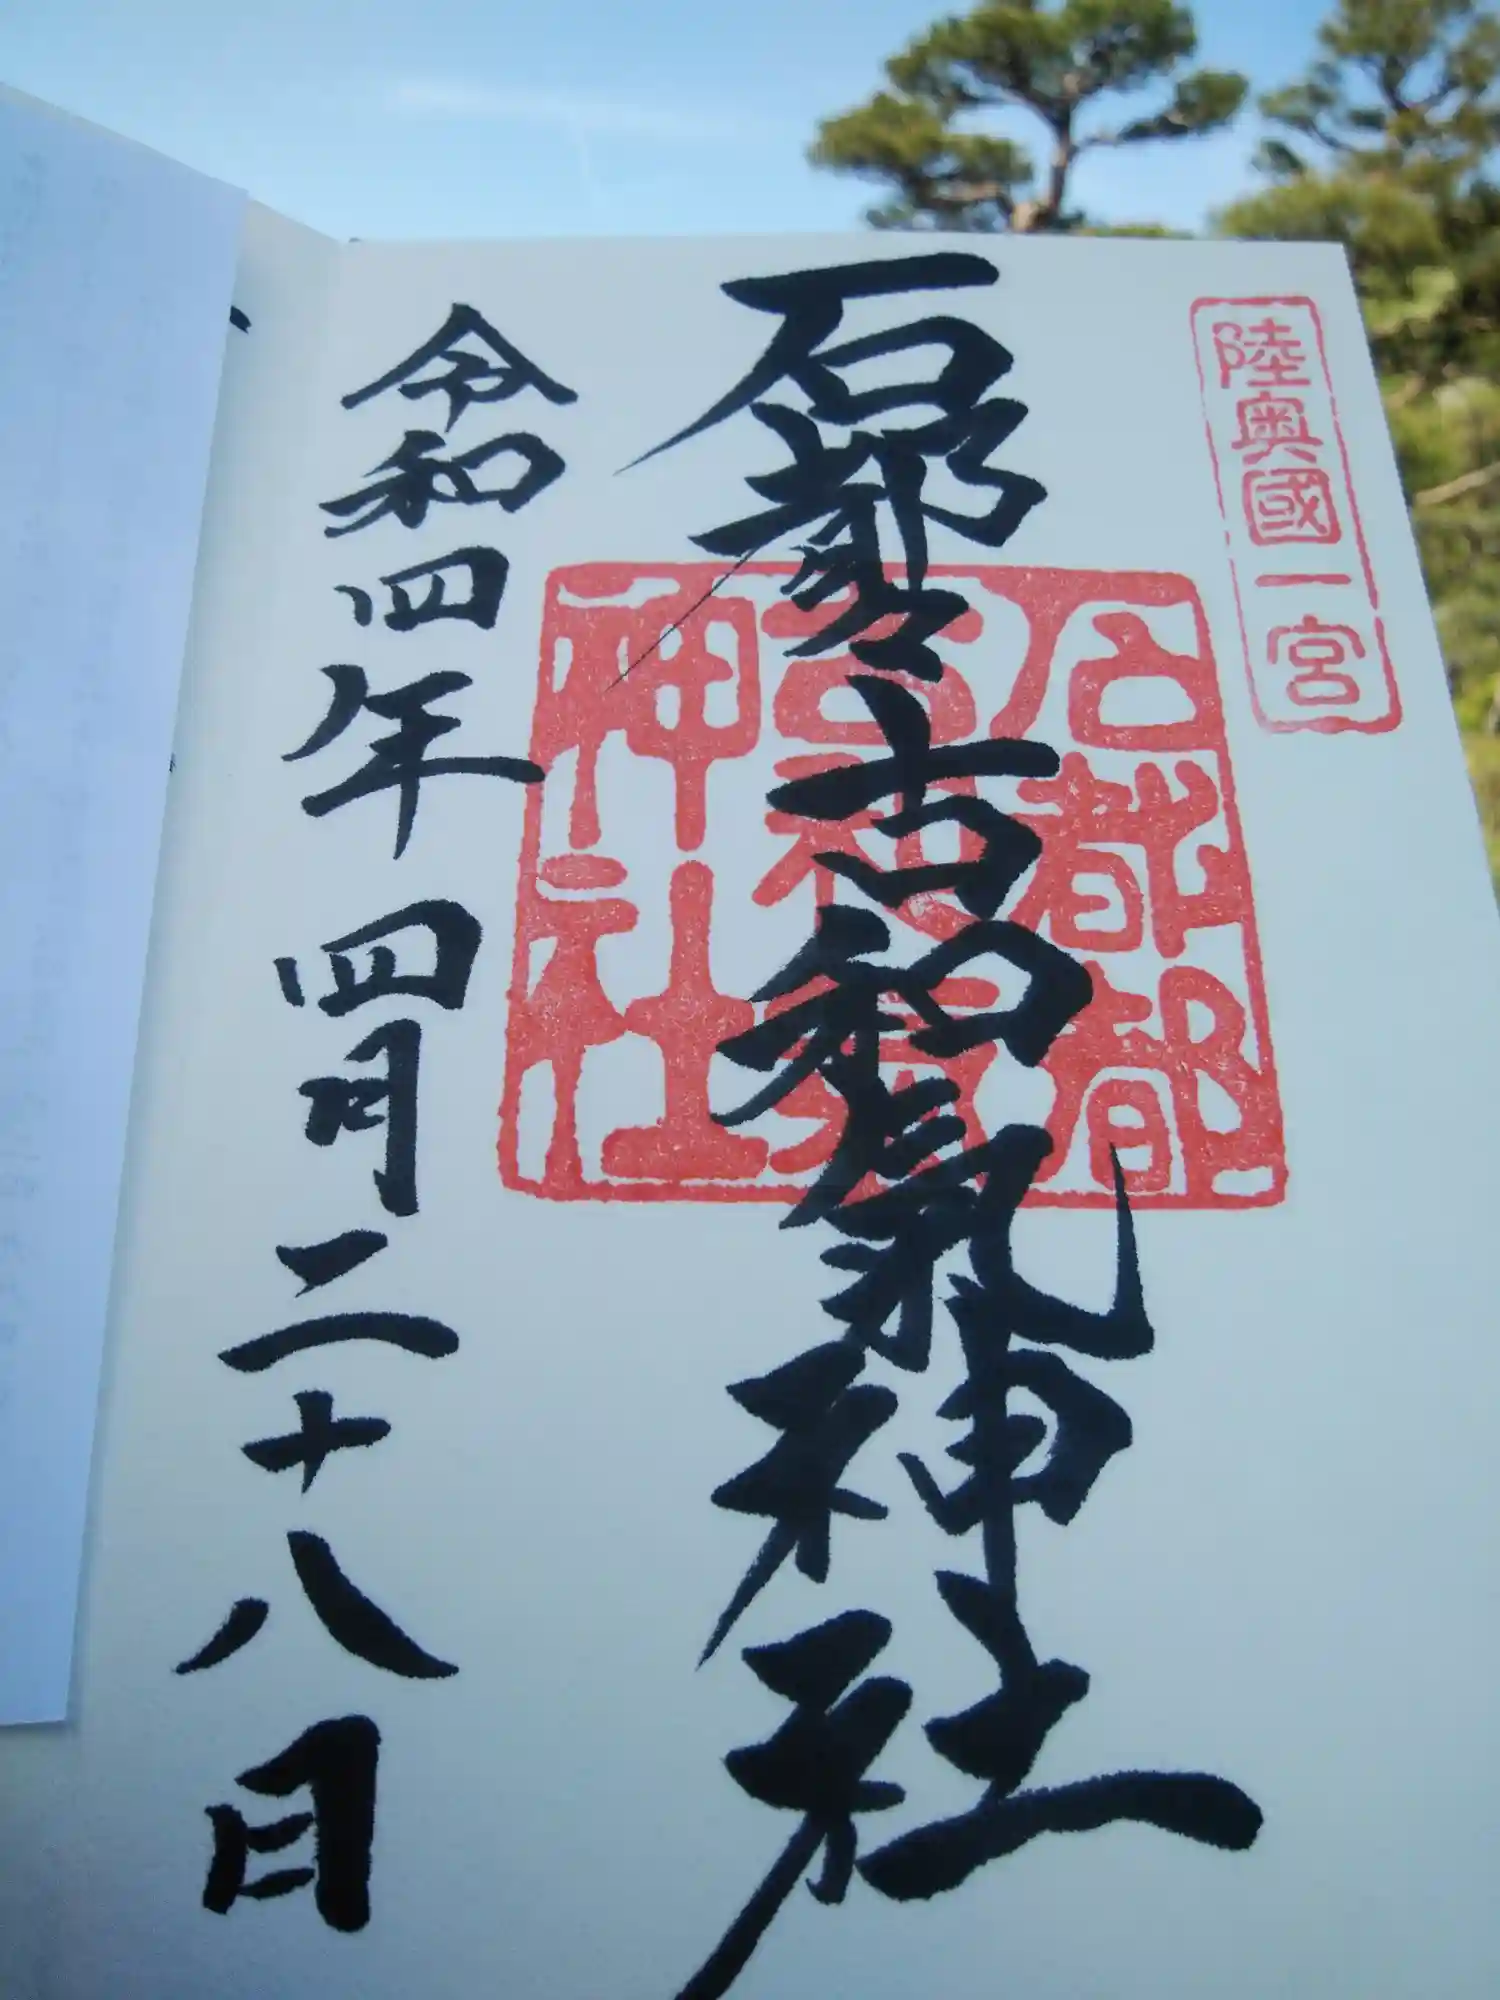 陸奥國一宮
石都々古和氣神社
石都都古和氣神社
令和四年四月二十八日